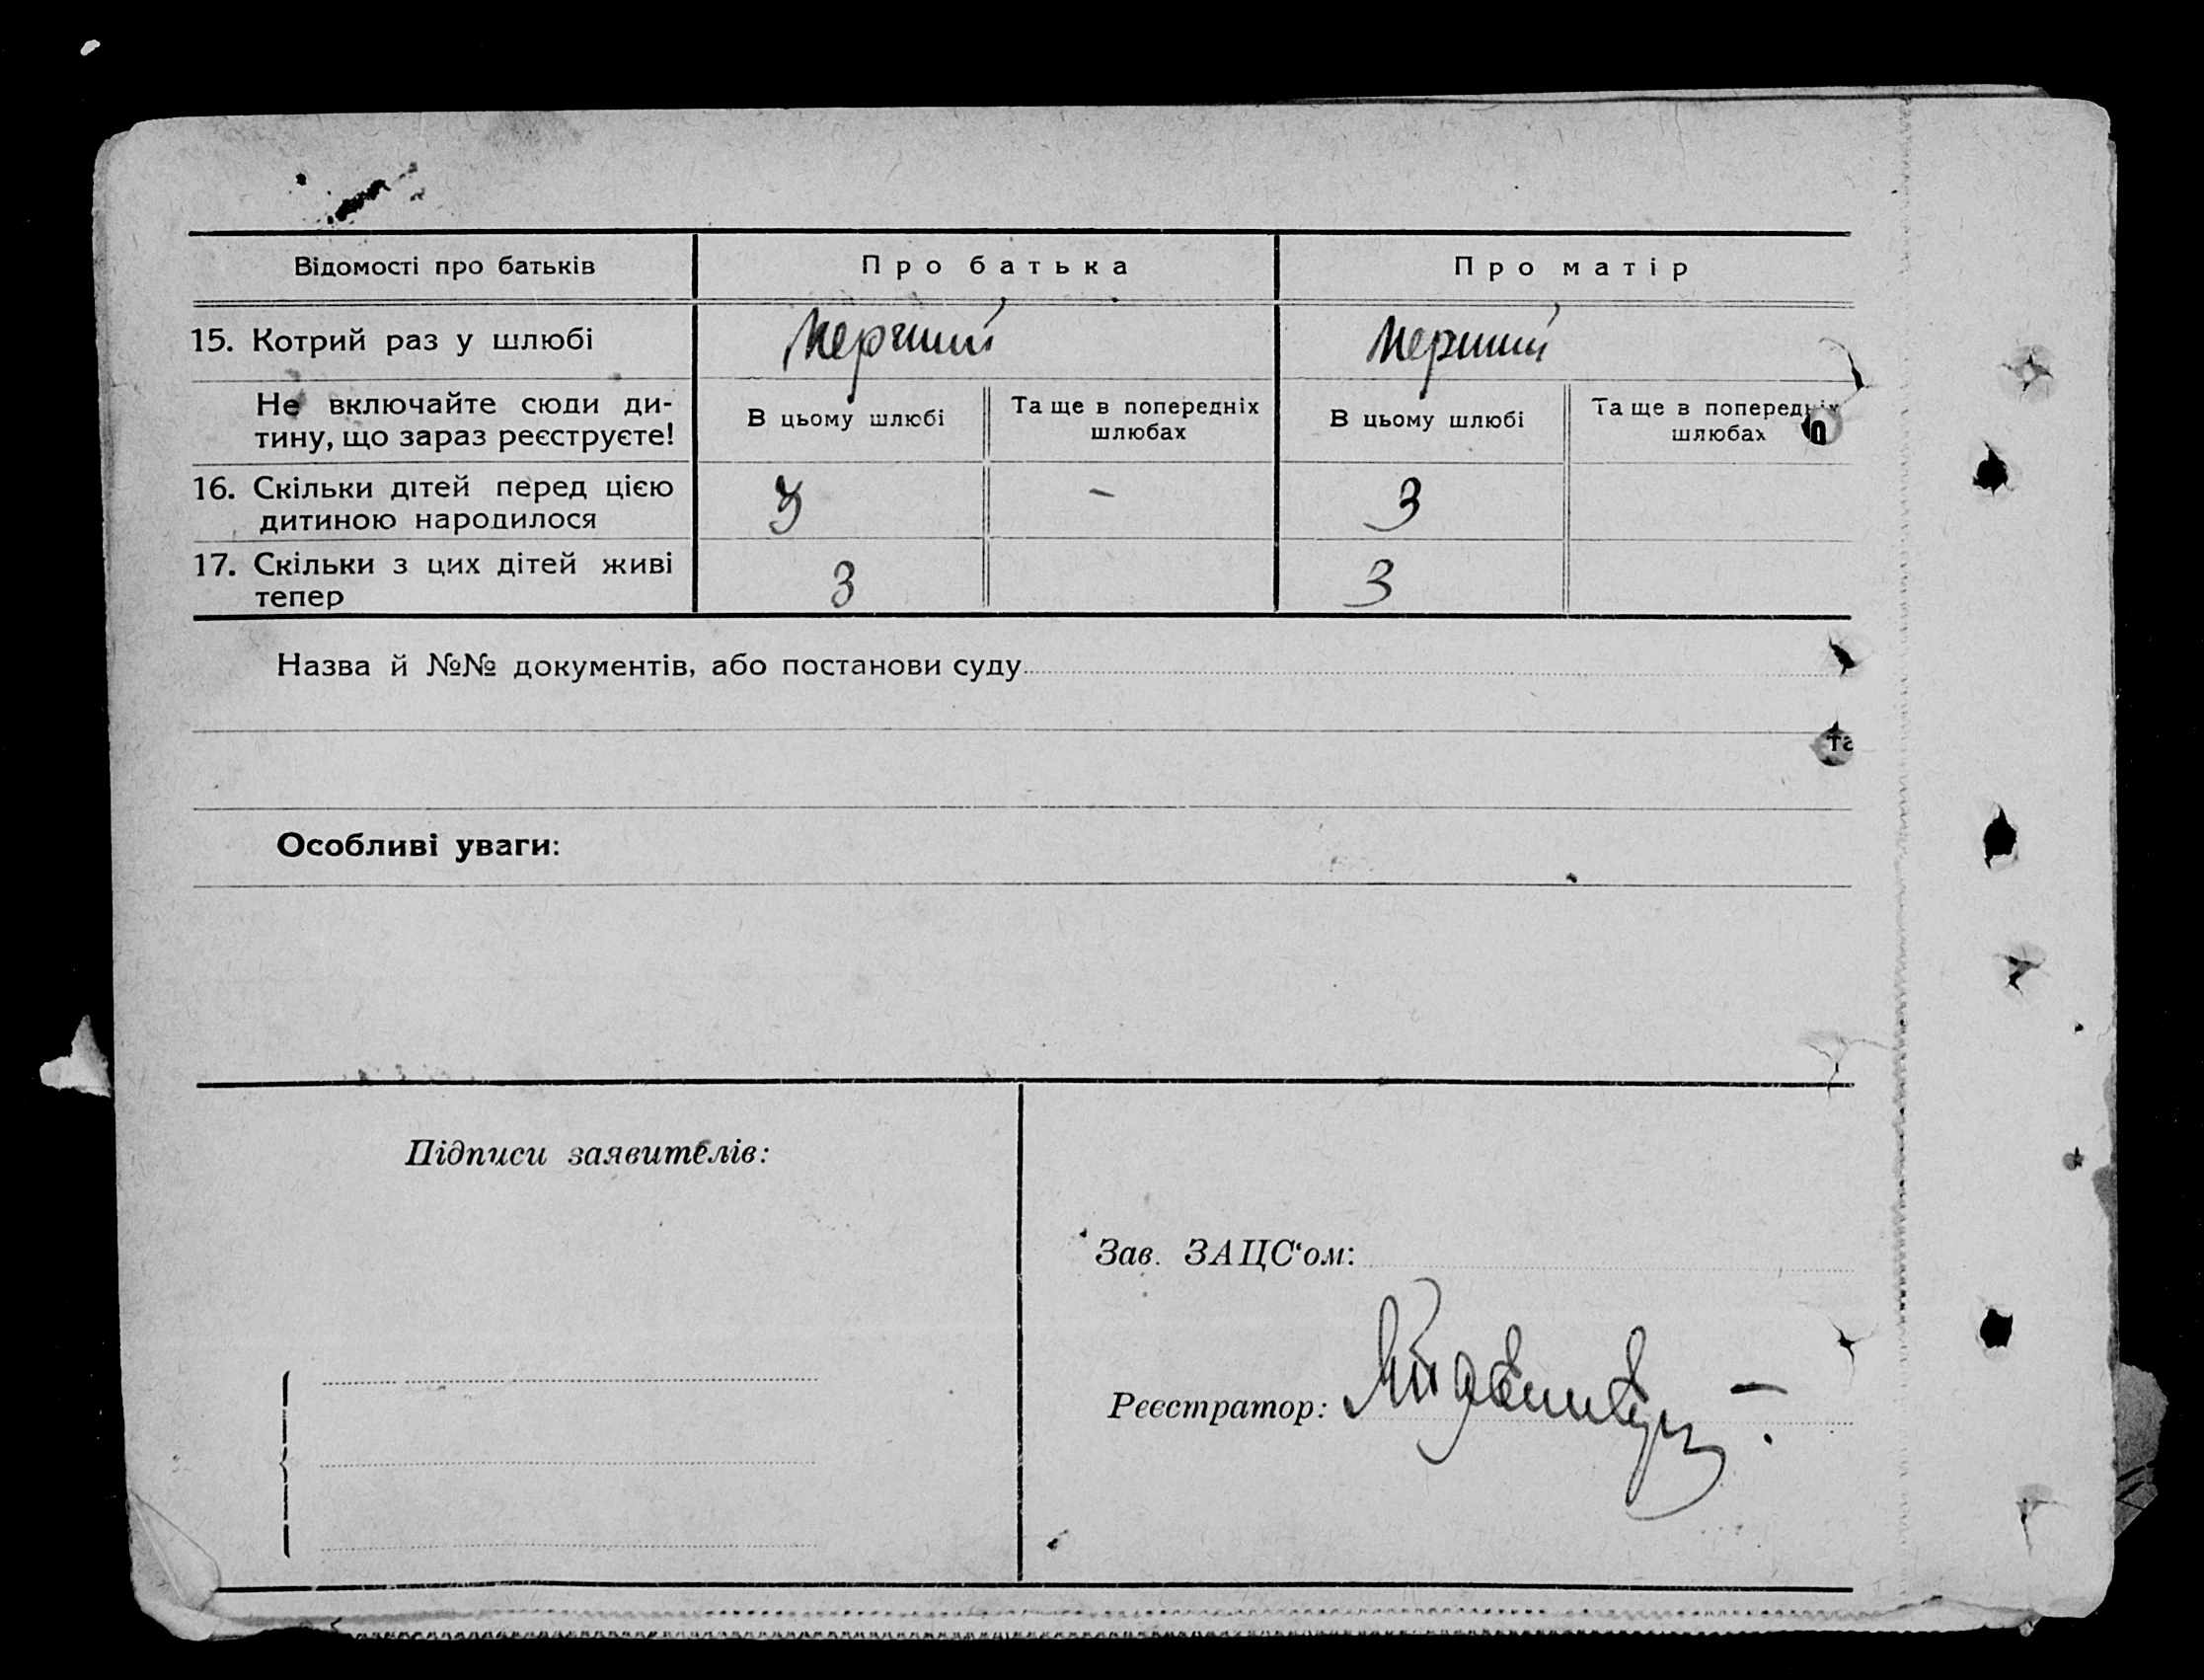 Відомості про батьків Про батька Про матір
15. Котрий раз у шлюбі Перший Перший
Не включайте сюди ди-
тину, що зараз реєструєте!
В цьому шлюбі Та ще в попередніх
шлюбах
В цьому шлюбі Та ще в попередніх
шлюбах
16. Скільки дітей перед цією
дитиною народилося
3 - 3
17. Скільки з цих дітей живі
тепер
3 3
Назва й №№ документів, або постанови суду
та
Особливі уваги:
Підписи заявителів:
Зав. ЗАЦС'ом:
Реєстратор: